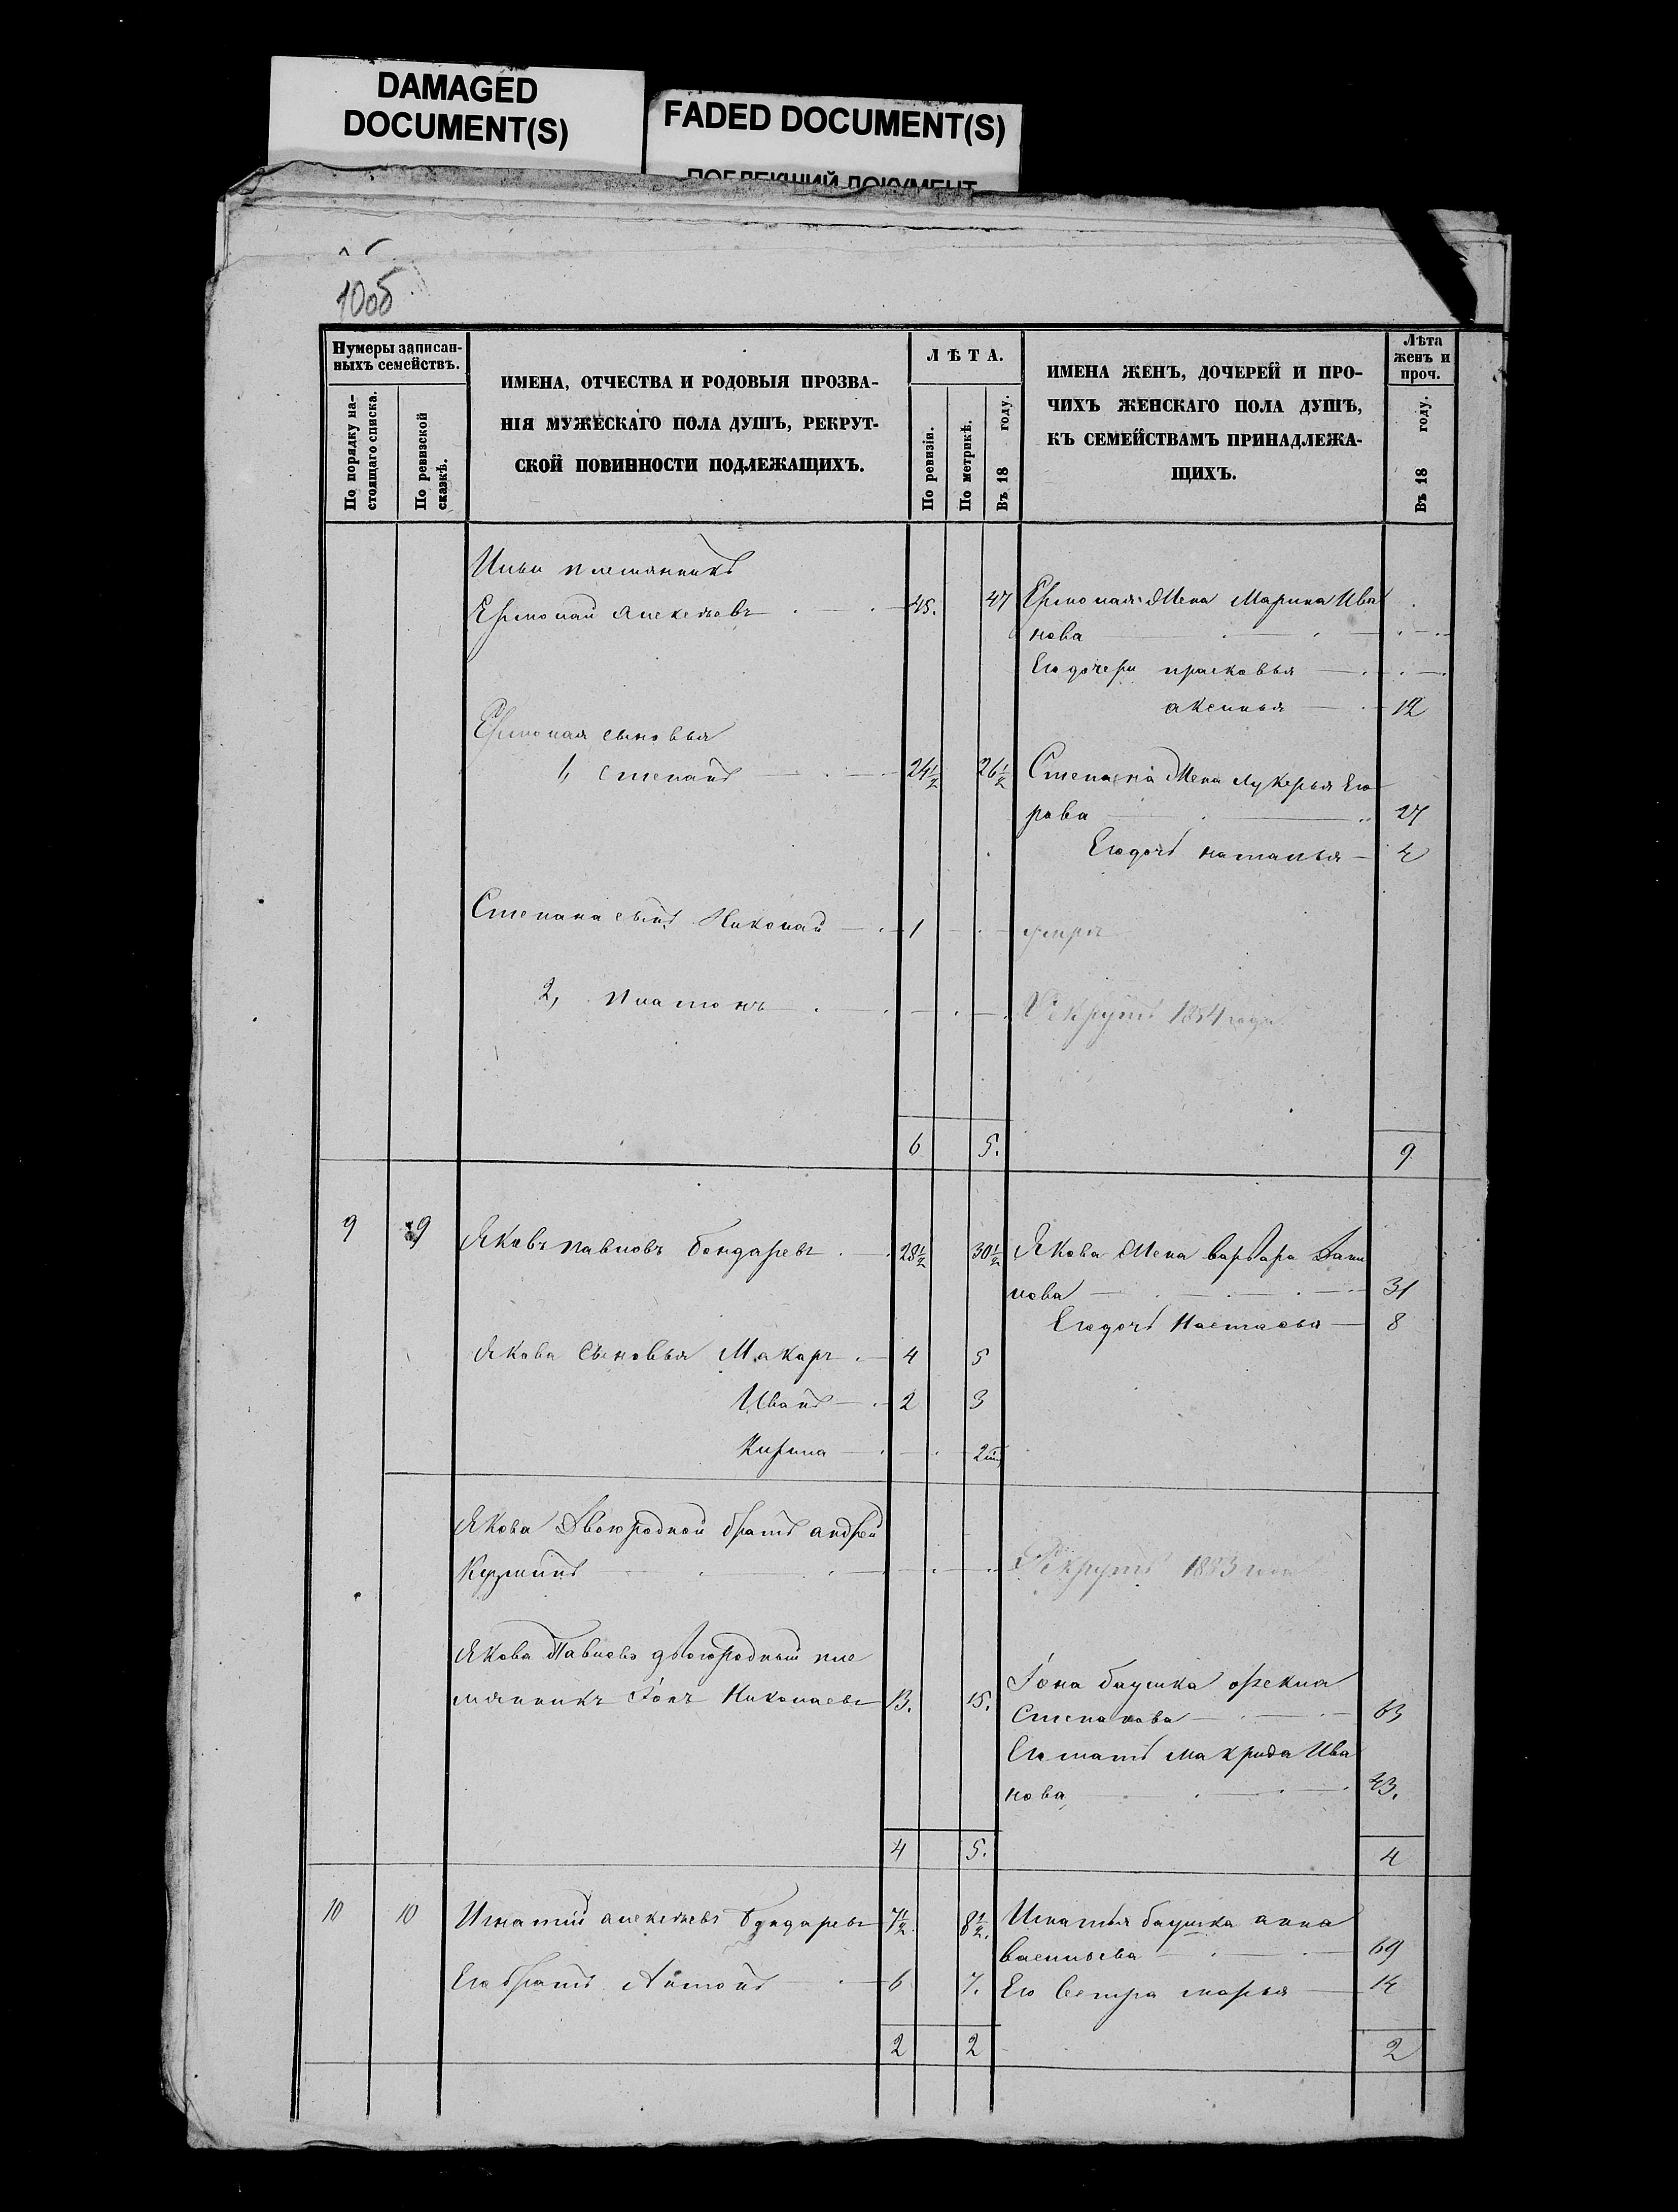 DAMAGED
DOCUMENT(S)
FADED DOCUMENT(S)
ПОБЛЕКШИЙ ДОКУМЕНТ
10об
Нумеры записан-
ныхъ семействъ.
По порядку на-
стоящаго списка.
По ревизской
сказкѣ.
ИМЕНА, ОТЧЕСТВА И РОДОВЫЯ ПРОЗВА-
НІЯ МУЖЕСКАГО ПОЛА ДУШЪ, РЕКРУТ-
СКОЙ ПОВИННОСТИ ПОДЛЕЖАЩИХЪ.
ЛѢТА.
По ревизіи.
По метрикѣ.
Въ 18 году.
ИМЕНА ЖЕНЪ, ДОЧЕРЕЙ И ПРО-
ЧИХЪ ЖЕНСКАГО ПОЛА ДУШЪ,
КЪ СЕМЕЙСТВАМЪ ПРИНАДЛЕЖА-
ЩИХЪ.
Лѣта
женъ и
проч.
Въ 18 году.
Ильи племянникъ
Ермолай алексѣевъ 45. 47 Ермолая жена Марина Ива
нова
Его дочери прасковья
аксинья 12
Ермолая сыновья
1, степанъ 24 1/2 26 1/2 Степана жена лукерья Его
рова 27
Его дочь наталья 4
Степана сынъ Николай 1 умеръ
2, платонъ Рекрутъ 1854 года
6 5. 9
9 9 Яковъ павловъ бондаревъ 28 1/2 30 1/2 Якова жена варвара Дани
лова 31
Его дочь Настасья 8
Якова Сыновья Макаръ 4 5
Иванъ 2 3
Кирила 2
Якова Двоюродной братъ андрей
Кузминъ Рекрутъ 1853 года
Якова Павлова двоюродный пле
мянникъ Іона Николаевъ 13. 15. Іона баушка Фекла
Степанова 63
Его мать макрида Ива
нова 43.
4 5. 4
10 10 Игнатій алексѣевъ бондаревъ 7 1/2. 8 1/2. Игнатья баушка анна
васильева 69
Его братъ Антонъ 6 7. Его Сестра марья 14
2 2 2